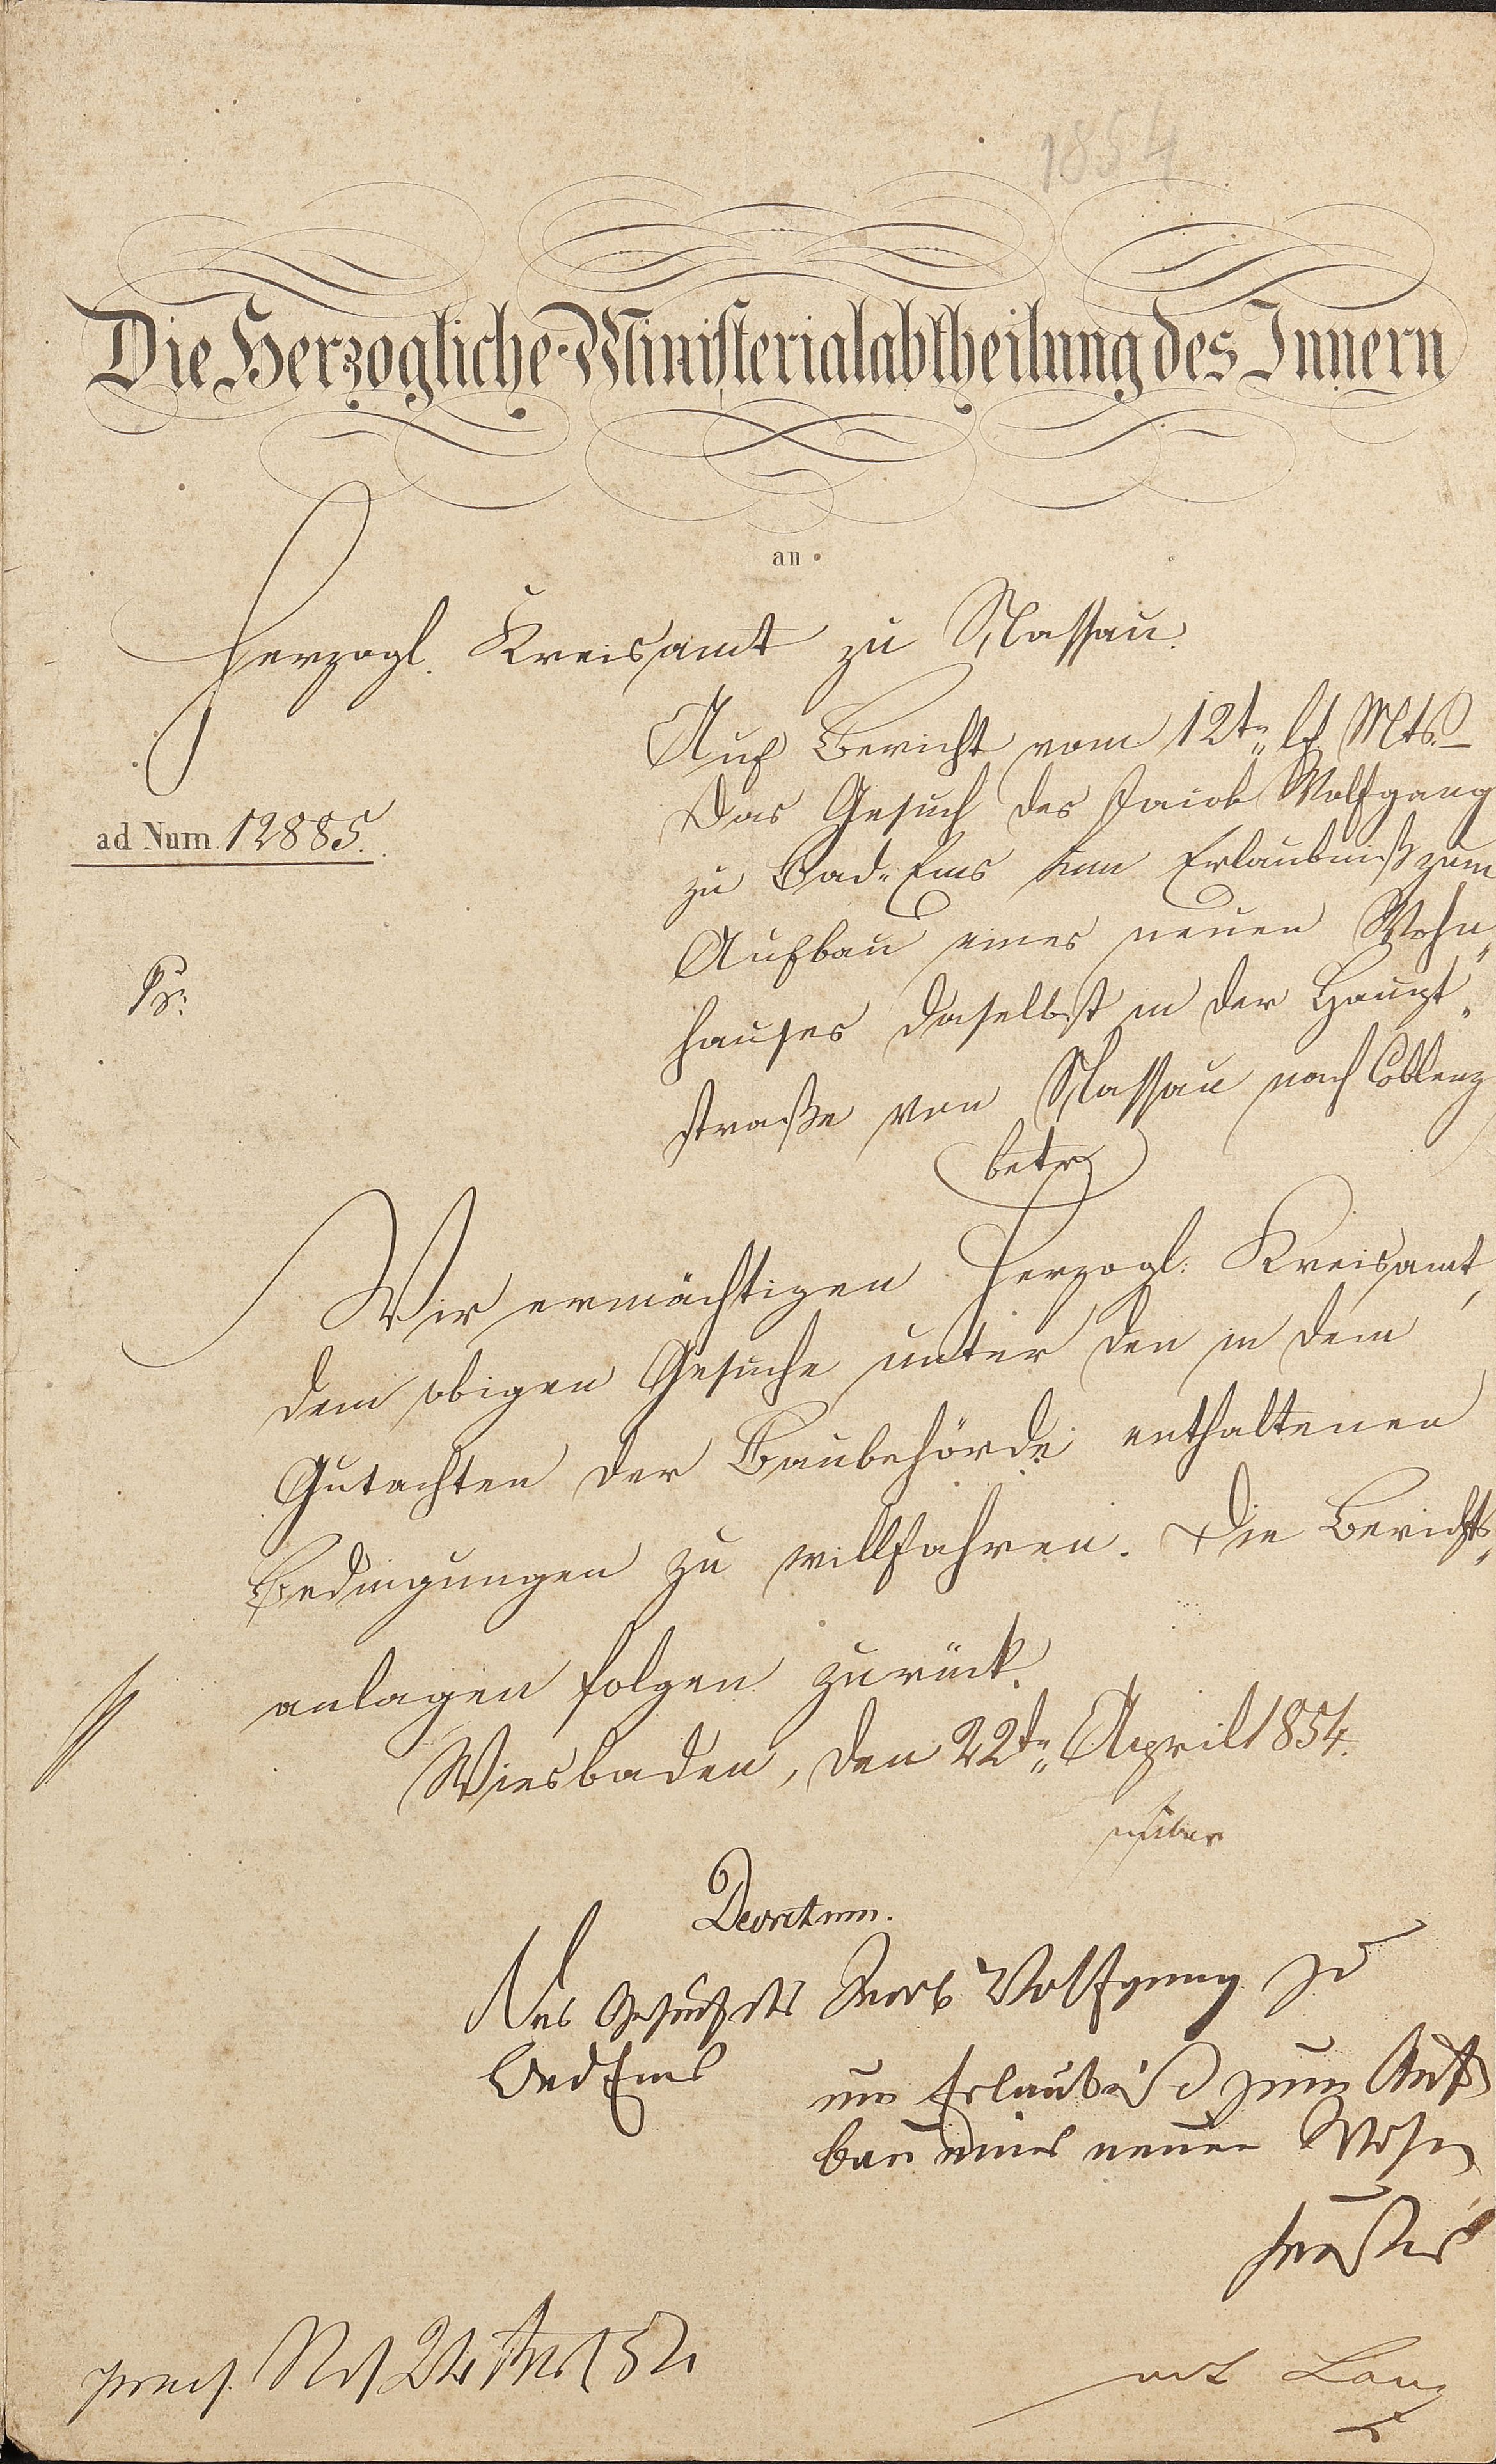 1854
Die Herzogliche Ministerialabtheilung des Innern
an
Herzogl. Kreisamt zu Nassau.
Auf Bericht vom 12ten lf. Mts.
ad Num. 12885.
Das Gesuch des Jacob Wolfgang
zu Bad-Ems um Erlaubniß zum
Pr:
Aufbau eines neuen Wohn-
hauses daselbst in der Haupt-
straße von Nassau nach Coblenz
betr.
Wir ermächtigen Herzogl. Kreisamt,
dem obigen Gesuche unter den in dem
Gutachten der Baubehörde enthaltenen
Bedingungen zu willfahren. Die Berichts-
anlagen folgen zurück.
Wiesbaden, den 22ten April 1854.
Decretum.
Das Gesuch des Jacob Wolfgang zu
Bad Ems
um Erlaubniß zum Auf
bau eines neuen Wohn
hauses